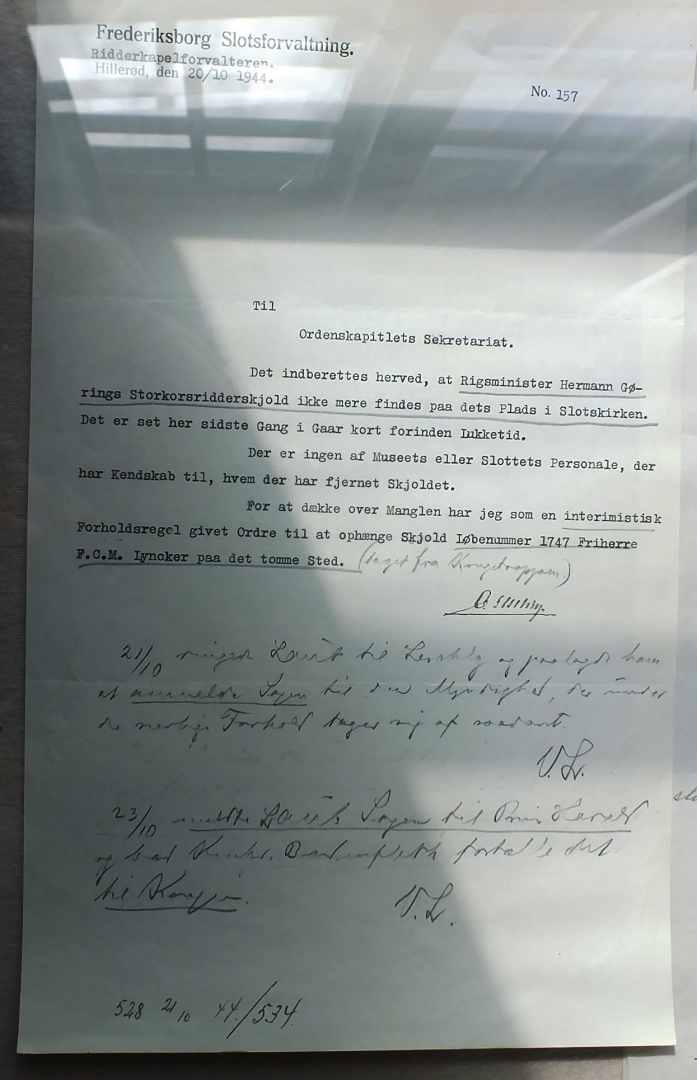 Frederiksborg Slotsforvaltning.
Ridderkapelforvalteren.
Hillerød, den 20/10 1944.
No. 157
Til
Ordenskapitlets Sekretariat.
Det indberettes herved, at Rigsminister Hermann Gø-
rings Storkorsridderskjold ikke mere findes paa dets Plads i Slotskirken.
Det er set her sidste Gang i Gaar kort forinden Lukketid.
Der er ingen af Museets eller Slottets Personale, der
har Kendskab til, hvem der har fjernet Skjoldet.
For at dække over Manglen har jeg som en interimistisk
Forholdsregel givet Ordre til at ophænge Skjold Løbenummer 1747 Friherre
F.C.M. Lyncker paa det tomme Sted. (taget fra Kongetrappen)
21/10 ringede til og paalagde ham
at anmelde Sagen til den Myndighed, der under
de nuværende Forhold tager sig af saadant.
V.L.
23/10 meldte Sagen til Prins
og bad fortælle det
til Kongen.
V.L.
528 21/10 44/534